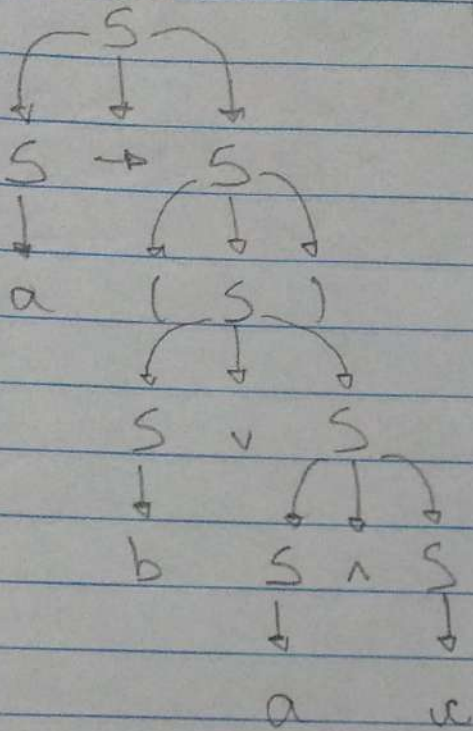 S
S → S
a ( S )
S ∨ S
b S ∧ S
a